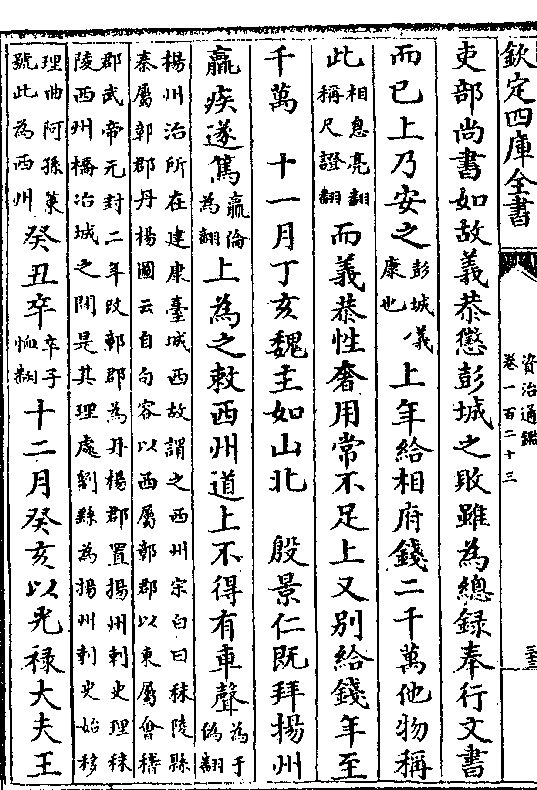 欽定四庫全書
資治通鑑
卷一百二十三
吏部尚書如故義恭懲彭城之敗雖為總録奉行文書
而已上乃安之彭城義康也上年給相府錢二千萬他物稱
此相息亮翻稱尺證翻而義恭性奢用常不足上又别給錢年至
千萬 十一月丁亥魏主如山北 殷景仁既拜揚州
羸疾遂篤羸倫為翻上為之敕西州道上不得有車聲為于偽翻
揚州治所在建康臺城西故謂之西州宋白曰秣陵縣
秦屬鄣郡丹楊圖云自句容以西屬鄣郡以東屬會稽
郡武帝元封二年改鄣郡為丹楊郡置揚州刺史理秣
陵西州橋冶城之間是其理處劉繇為揚州刺史始移
理曲阿孫策號此為西州癸丑卒卒子恤翻十二月癸亥以光禄大夫王